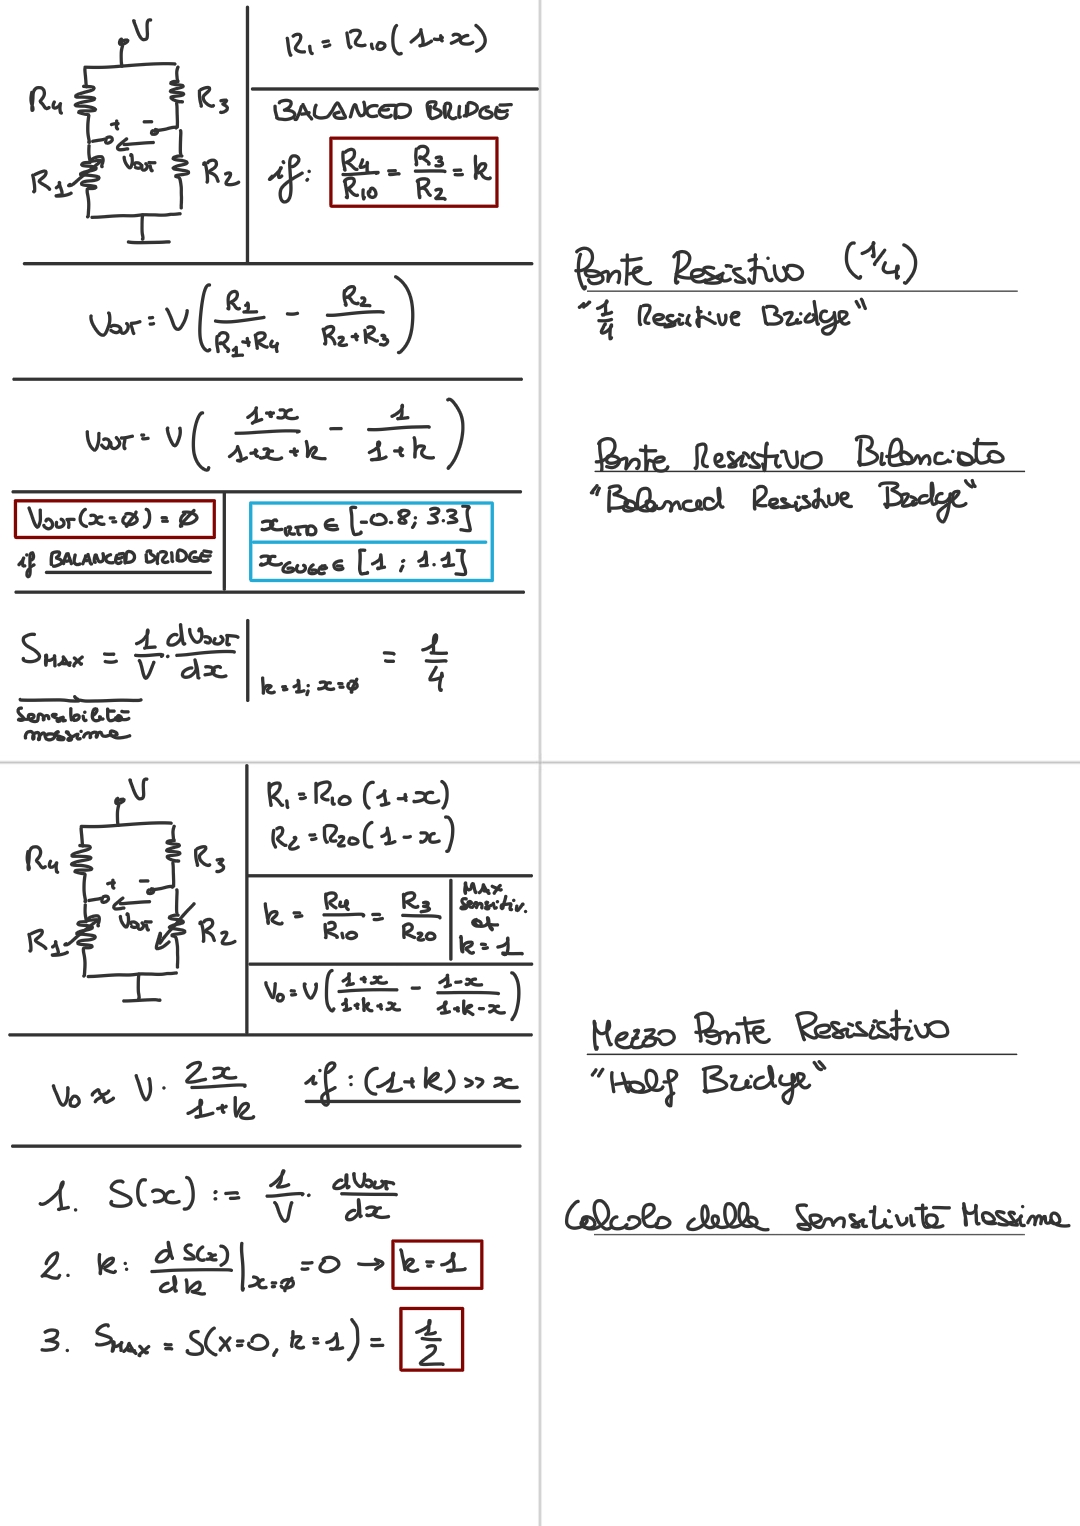 V
R4
R3
+ -
Vout
R1
R2
R1 = R10(1+x)
BALANCED BRIDGE
if: R4/R10 = R3/R2 = k
Vout = V(R1/(R1+R4) - R2/(R2+R3))
Vout = V((1+x)/(1+x+k) - 1/(1+k))
Vout(x=ø) = ø
if BALANCED BRIDGE
xRTD ∈ [-0.8; 3.3]
xGUGE ∈ [1 ; 1.1]
SMAX = 1/V · dVout/dx | k=1; x=ø = 1/4
Sensibilità
massima
Ponte Resistivo (1/4)
"1/4 Resistive Bridge"
Ponte Resistivo Bilanciato
"Balanced Resistive Bridge"
V
R4
R3
+ -
Vout
R1
R2
R1 = R10 (1+x)
R2 = R20 (1-x)
k = R4/R10 = R3/R20
MAX
Sensitiv.
at
k = 1
V0 = V((1+x)/(1+k+x) - (1-x)/(1+k-x))
V0 ≈ V · 2x/(1+k) if: (1+k) >> x
1. S(x) := 1/V · dVout/dx
2. k: d S(x)/dk | x=ø = 0 → k = 1
3. SMAX = S(x=0, k=1) = 1/2
Mezzo Ponte Resisistivo
"Half Bridge"
Calcolo della Sensitività Massima